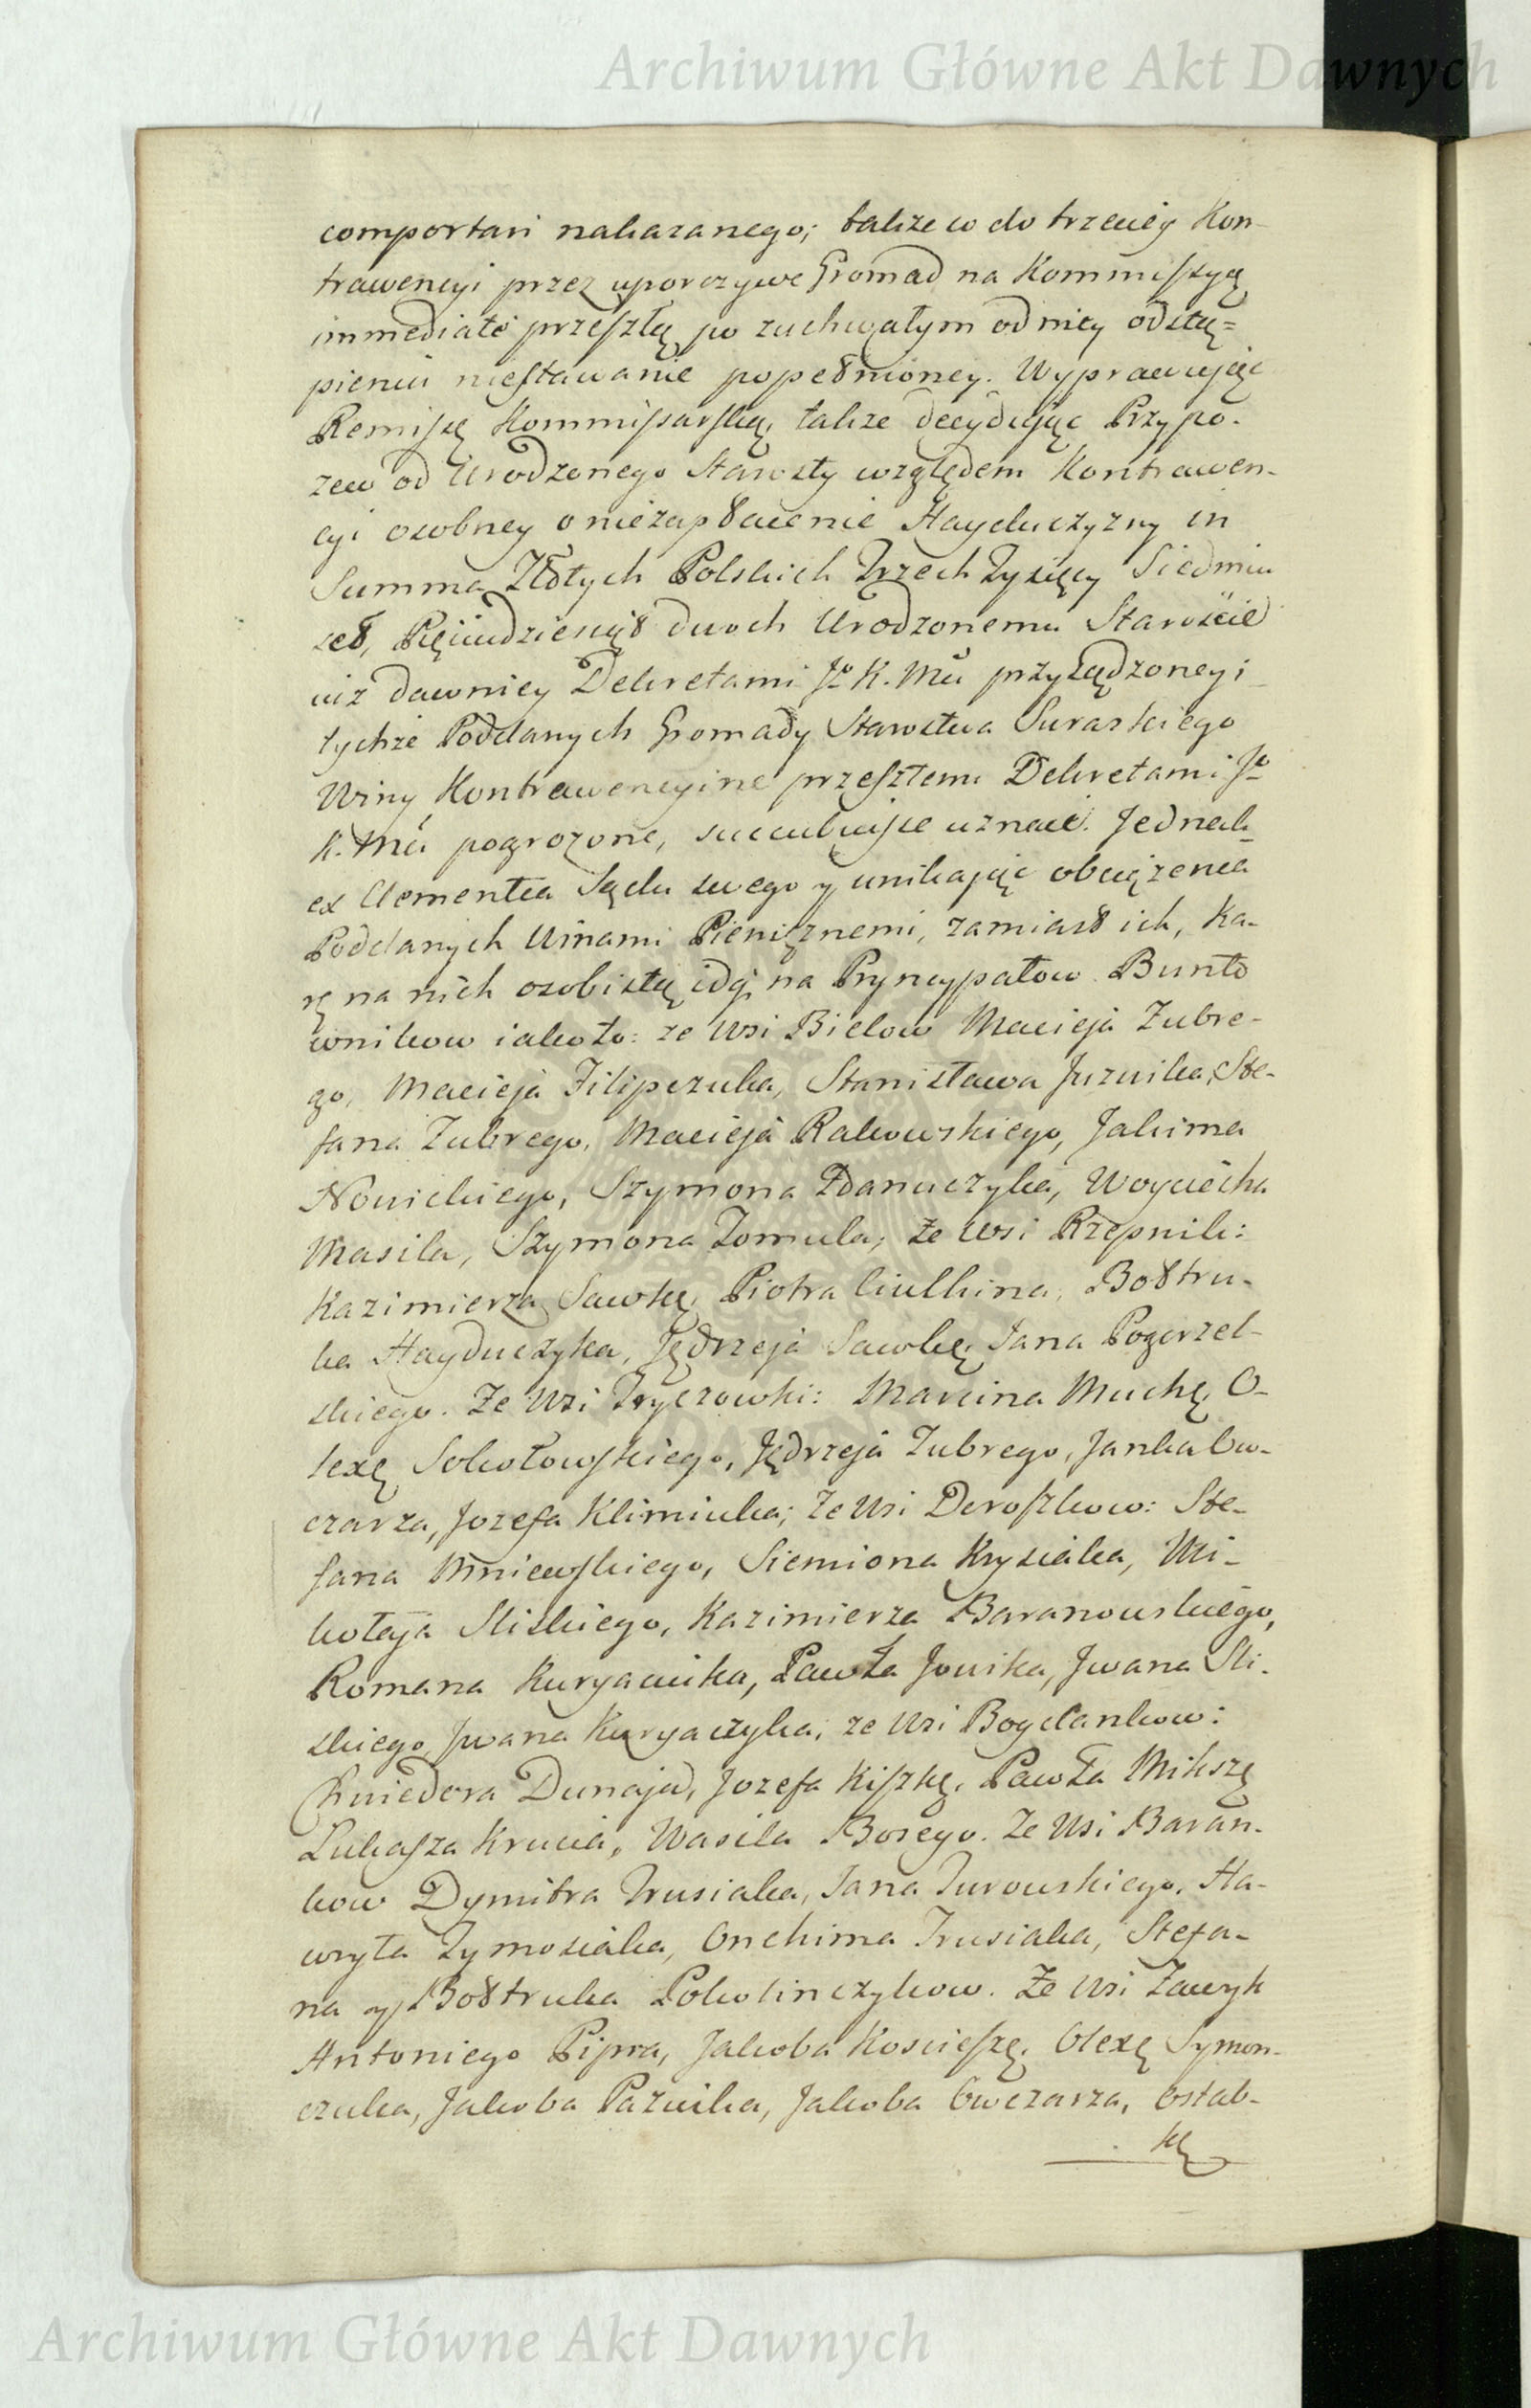 Archiwum Główne Akt Dawnych
comportari nakazanego; takze w do trzeciey Kon-
trawencyi przez uporczywe Gromad na Kommissyą
immediate przeszłą po zuchwałym od niey odstą=
pieniu niestawanie popełnioney. Wyprawując
Remissę Kommissarską, takze decyduiąc Przypo-
zew od Urodzonego Starosty względem Kontrawen-
cyi osobney o niezapłacenie Hayduczyzny in
Summa Złotych Polskich Trzech Tysięcy Siedmiu
set, Pięciudziesiąt dwoch Urodzonemu Staroście
iuż dawniey Dekretami Jo K. Mci przysądzoney i
tychże Poddanych Gromady Starostwa Suraskiego
Winy Kontrawencyine przeszłemi Dekretami Jo
K. Mci pogrozone, succubuisse uznać. Jednak
ex Clementia Sądu swego y unikając obciążenia
Poddanych Winami Pieniężnemi, zamiast ich, Ka-
rę na nich osobistą idq. na Pryncypałow Bunto
wnikow iako to: ze Wsi Bielow Macieja Zubre-
go, Macieja Filipczuka, Stanisława Juzwika, Ste-
fana Zubrego, Macieja Rakowskiego, Jakima
Nowickiego, Szymona Zdanuczyka, Woyciecha
Masila, Szymona Tomula; Ze Wsi Rzepnik:
Kazimierza Sawkę, Piotra Ciulkina, Bostru-
ka Hayduczyka, Jędrzeja Sawkę, Jana Pogorzel-
skiego. Ze Wsi Tryczowki: Marcina Muchę, O-
lexę Sokołowskiego, Jędrzeja Zubrego, Janka Ow-
czarza, Jozefa Klimiuka; Ze Wsi Doroszkow: Ste-
fana Mniewskiego, Siemiona Krysiaka, Mi-
kołaja Sliskiego, Kazimierza Baranowskiego,
Romana Kuryanika, Pawła Jowika, Jwana Sli-
skiego, Jwana Kuryaczyka; ze Wsi Bogdankow:
Chwiedora Dunaja, Jozefa Kiszkę, Pawła Mikszę
Łukasza Krucia, Wasila Bosego. Ze Wsi Baran-
kow Dymitra Trusiaka, Jana Turowskiego, Ha-
wryła Tymosiaka, Onchima Trusiaka, Stefa-
na y Bostruka Pokolinczykow. Ze Wsi Zawyk
Antoniego Pipra, Jakoba Kościeszę, Olexę Symon-
czuka, Jakoba Pazuika, Jakoba Owczarza, Ostab-
kę
Archiwum Główne Akt Dawnych